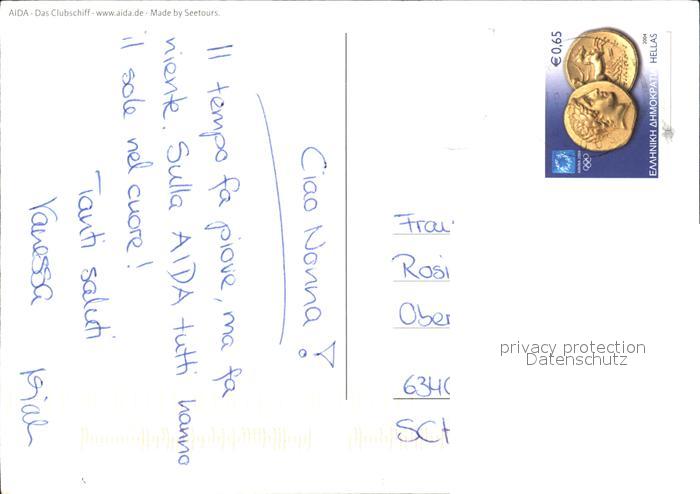 AIDA - Das Clubschiff - www.aida.de - Made by Seetours.
Ciao Nonna!
Il tempo fa piove, ma fa
niente. Sulla AIDA tutti hanno
il sole nel cuore!
Tanti saluti
Vanessa
€0,65
2004
HELLAS
ΕΛΛΗΝΙΚΗ ΔΗΜΟΚΡΑΤΙ
ATHENS 2004
Frau
Rosi
Ober
634
SCH
privacy protection
Datenschutz